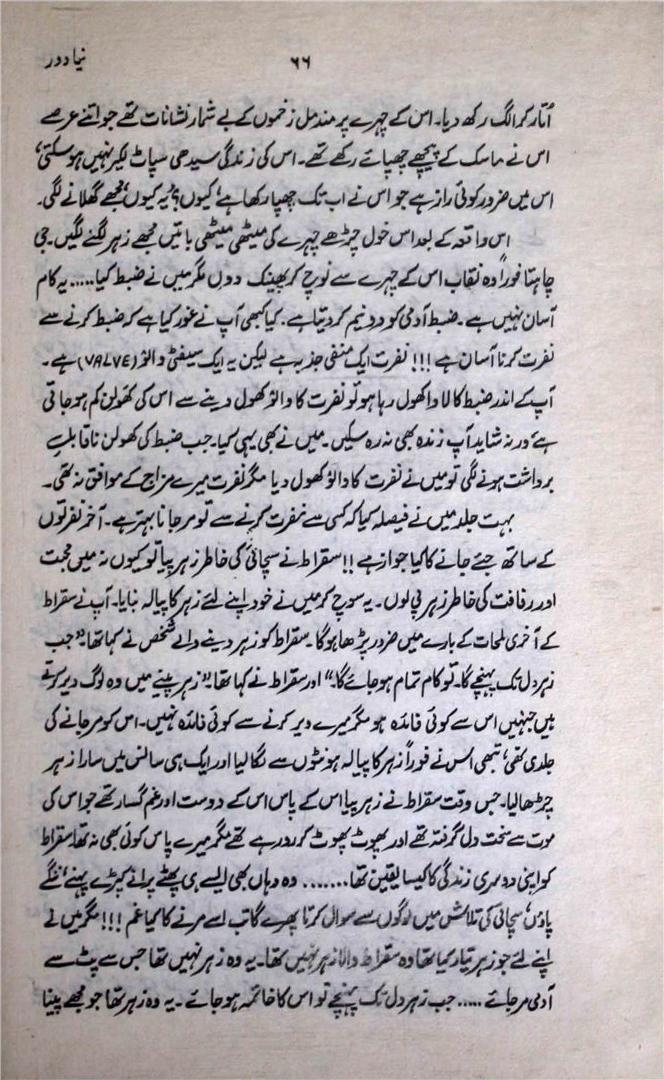 ۶۶ نیا دور
اُتار کر الگ رکھ دیا۔ اس کے چہرے پر مندمل زخموں کے بے شمار نشانات تھے جو اتنے عرصے
اس نے ماسک کے پیچھے چھپائے رکھے تھے۔ اس کی زندگی سیدھی سپاٹ لکیر نہیں ہو سکتی،
اس میں ضرور کوئی راز ہے جو اس نے اب تک چھپا رکھا ہے، کیوں؟ یہ کیوں، مجھے گھلانے لگی۔
اس واقعہ کے بعد اس خول چڑھے چہرے کی میٹھی میٹھی باتیں مجھے زہر لگنے لگیں۔ جی
چاہتا فوراً وہ نقاب اس کے چہرے سے نوچ کر پھینک دوں مگر میں نے ضبط کیا..... یہ کام
آسان نہیں ہے۔ ضبط آدمی کو دو نیم کر دیتا ہے۔ کیا کبھی آپ نے غور کیا ہے کہ ضبط کرنے سے
نفرت کرنا آسان ہے !!! نفرت ایک منفی جذبہ ہے لیکن یہ ایک سیفٹی والو (VALVE) ہے۔
آپ کے اندر ضبط کا لاوا کھول رہا ہو تو نفرت کا والو کھول دینے سے اس کی کھولن کم ہو جاتی
ہے ورنہ شاید آپ زندہ بھی نہ رہ سکیں۔ میں نے بھی یہی کیا۔ جب ضبط کی کھولن ناقابلِ
برداشت ہونے لگی تو میں نے نفرت کا والو کھول دیا مگر نفرت میرے مزاج کے موافق نہ تھی۔
بہت جلد میں نے فیصلہ کیا کہ کسی سے نفرت کرنے سے تو مر جانا بہتر ہے۔ آخر نفرتوں
کے ساتھ جئے جانے کا کیا جواز ہے !! سقراط نے سچائی کی خاطر زہر پیا تو کیوں نہ میں محبت
اور رفاقت کی خاطر زہر پی لوں۔ یہ سوچ کر میں نے خود اپنے لئے زہر کا پیالہ بنایا۔ آپ نے سقراط
کے آخری لمحات کے بارے میں ضرور پڑھا ہوگا۔ سقراط کو زہر دینے والے شخص نے کہا تھا۔ "جب
زہر دل تک پہنچے گا۔ تو کام تمام ہو جائے گا۔" اور سقراط نے کہا تھا۔ "زہر پینے میں وہ لوگ دیر کرتے
ہیں جنہیں اس سے کوئی فائدہ ہو مگر میرے دیر کرنے سے کوئی فائدہ نہیں۔ اس کو مر جانے کی
جلدی تھی، تبھی اس نے فوراً زہر کا پیالہ ہونٹوں سے لگا لیا اور ایک ہی سانس میں سارا زہر
چڑھا لیا۔ جس وقت سقراط نے زہر پیا اس کے پاس اس کے دوست اور غم گسار تھے جو اس کی
موت سے سخت دل گرفتہ تھے اور پھوٹ پھوٹ کر رو رہے تھے مگر میرے پاس کوئی بھی نہ تھا۔ سقراط
کو اپنی دوسری زندگی کا کیسا یقین تھا....... وہ وہاں بھی ایسے ہی پھٹے پرانے کپڑے پہنے، ننگے
پاؤں سچائی کی تلاش میں لوگوں سے سوال کرتا پھرے گا تب اسے مرنے کا کیا غم !!! مگر میں نے
اپنے لئے جو زہر تیار کیا تھا وہ سقراط والا زہر نہیں تھا۔ یہ وہ زہر نہیں تھا جس سے پٹ سے
آدمی مر جائے ..... جب زہر دل تک پہنچے تو اس کا خاتمہ ہو جائے۔ یہ وہ زہر تھا جو مجھے پینا